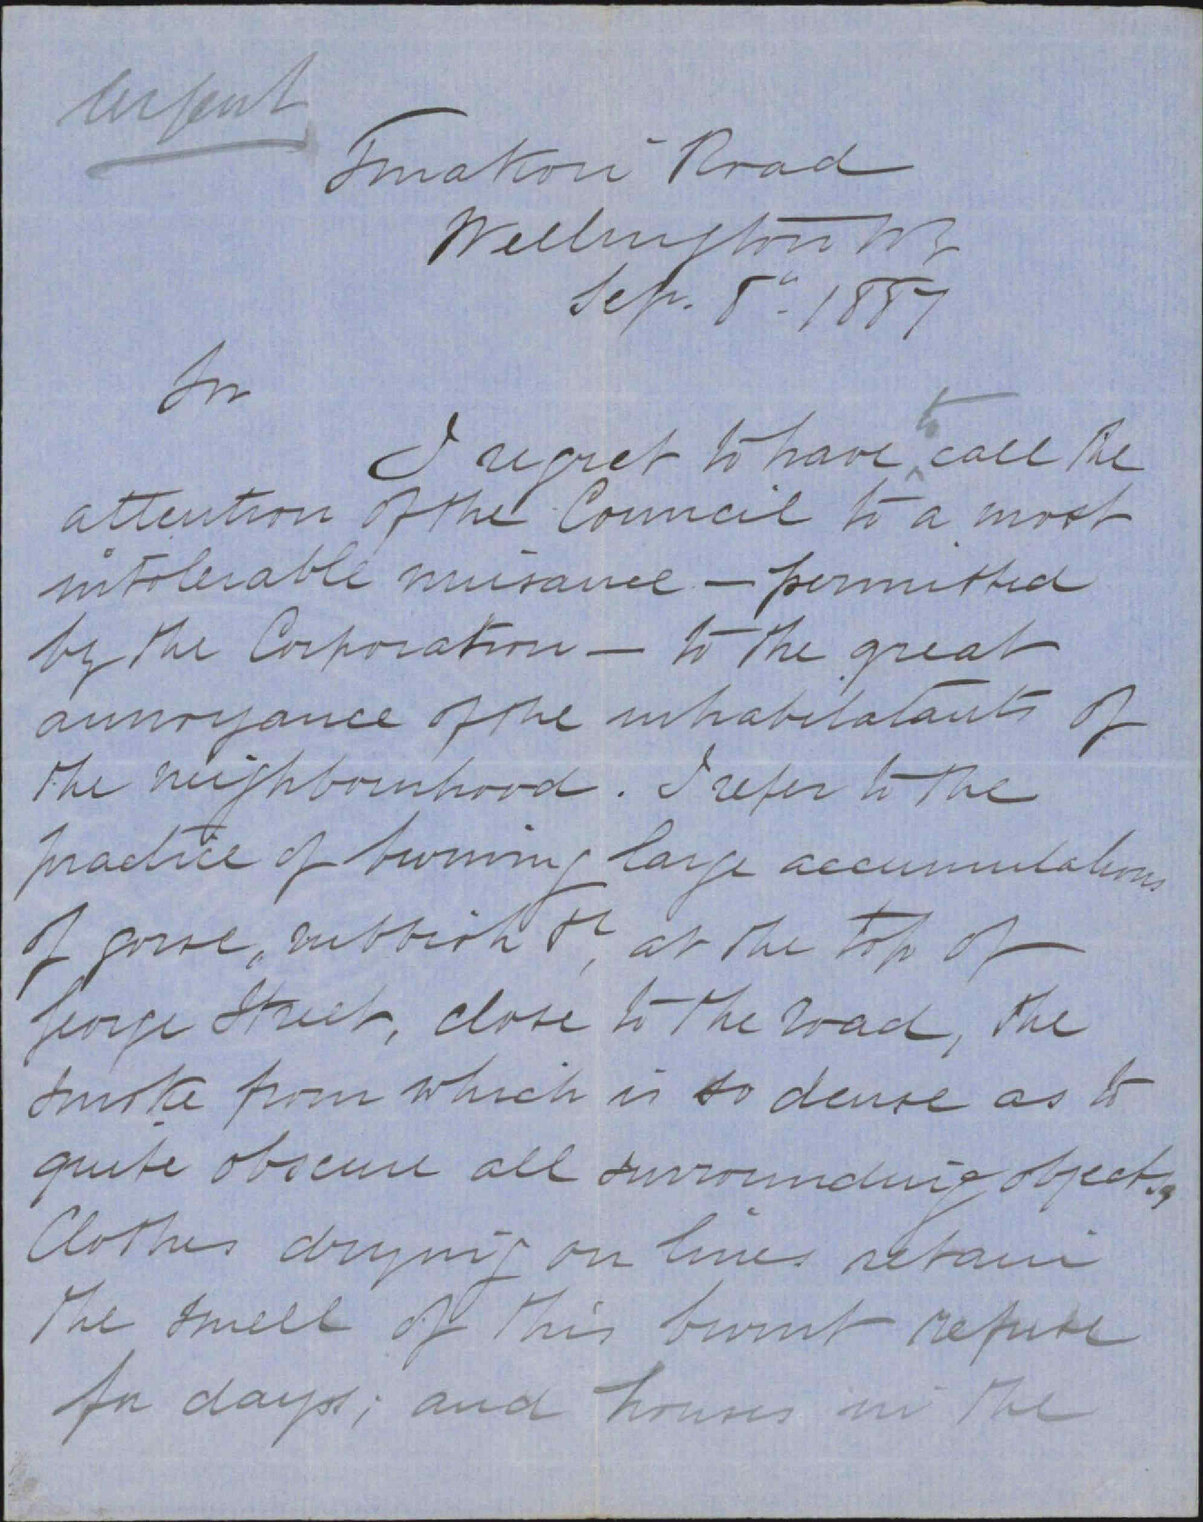 Urgent
Tinakori Road
Wellington NZ
Sep. 8th. 1887
Sir
I regret to have to call the
attention of the Council to a most
intolerable nuisance — permitted
by the Corporation — to the great
annoyance of the inhabilatants of
the neighbourhood. I refer to the
practice of burning large accumulations
of gorse, rubbish &c, at the top of
George Street, close to the road, the
smoke from which is so dense as to
quite obscure all surrounding objects,
Clothes drying on lines retain
the smell of this burnt refuse
for days; and houses in the